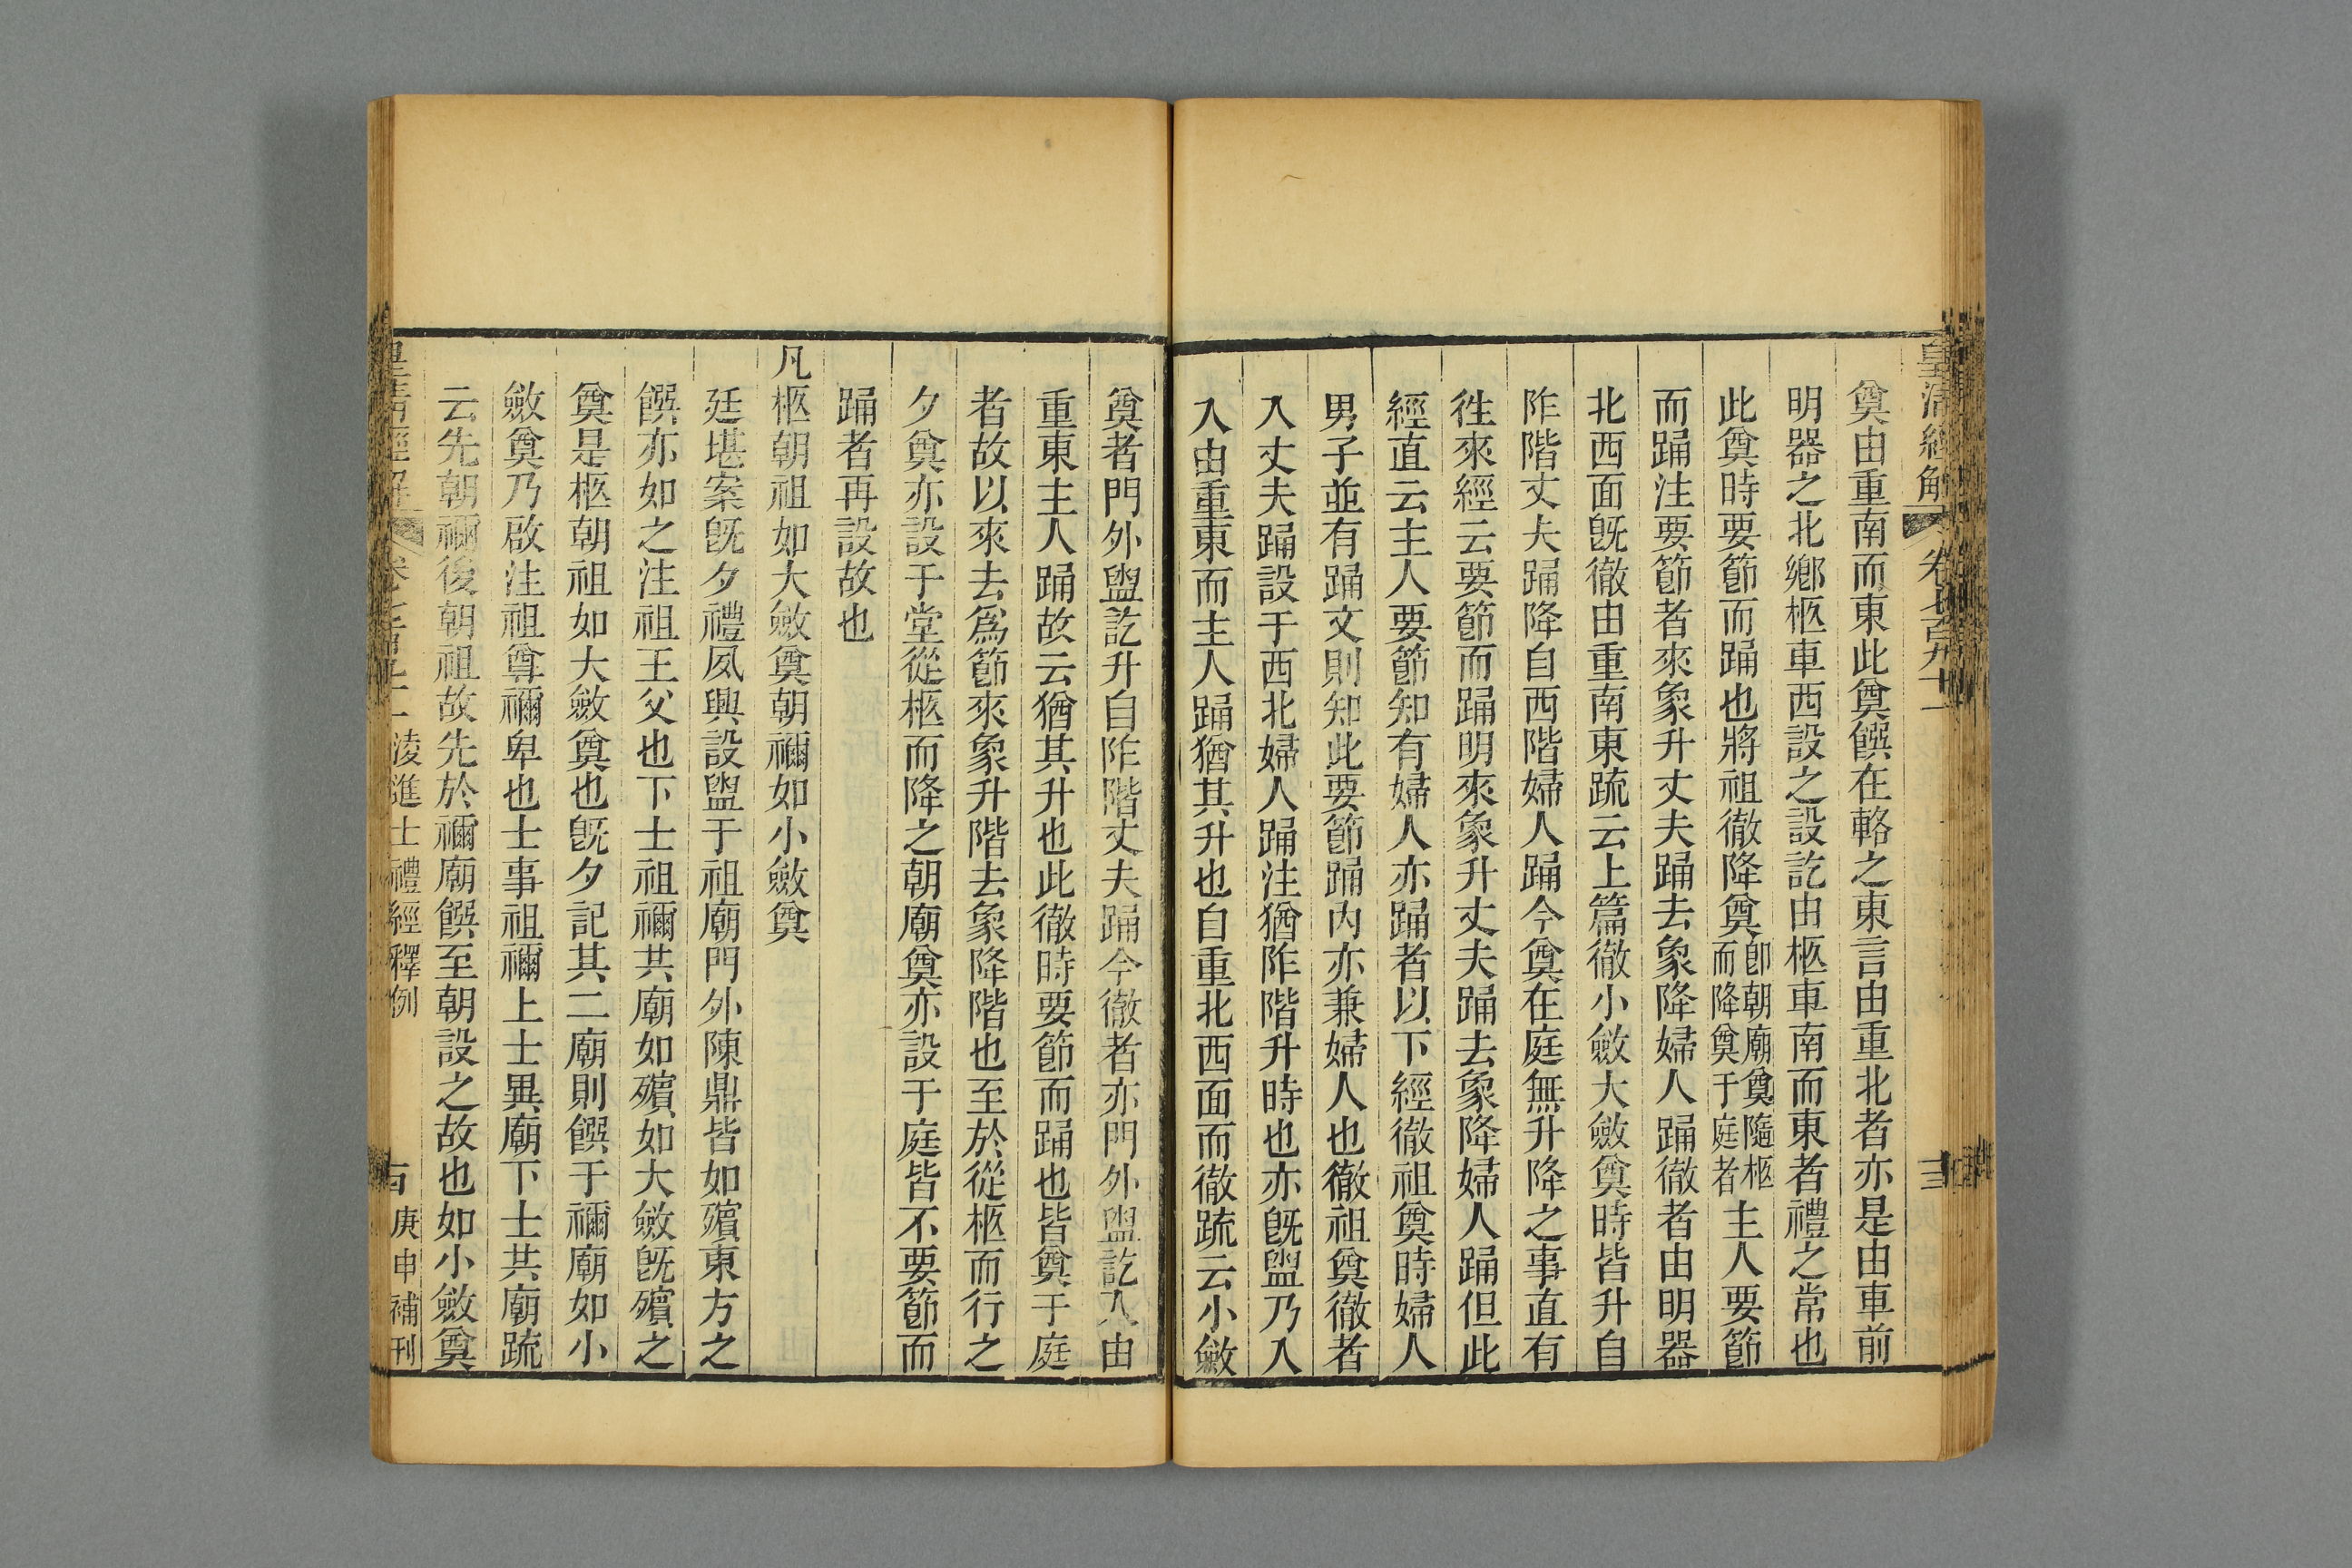 皇清經解 卷七百九十一 十三
奠由重南而東此奠饌在輅之東言由重北者亦是由車前
明器之北鄉柩車西設之設訖由柩車南而東者禮之常也
此奠時要節而踊也將祖徹降奠卽朝廟奠隨柩而降奠于庭者主人要節
而踊注要節者來象升丈夫踊去象降婦人踊徹者由明器
北西面旣徹由重南東疏云上篇徹小斂大斂奠時皆升自
阼階丈夫踊降自西階婦人踊今奠在庭無升降之事直有
徃來經云要節而踊明來象升丈夫踊去象降婦人踊但此
經直云主人要節知有婦人亦踊者以下經徹祖奠時婦人
男子並有踊文則知此要節踊內亦兼婦人也徹祖奠徹者
入丈夫踊設于西北婦人踊注猶阼階升時也亦旣盥乃入
入由重東而主人踊猶其升也自重北西面而徹疏云小斂
奠者門外盥訖升自阼階丈夫踊今徹者亦門外盥訖入由
重東主人踊故云猶其升也此徹時要節而踊也皆奠于庭
者故以來去爲節來象升階去象降階也至於從柩而行之
夕奠亦設于堂從柩而降之朝廟奠亦設于庭皆不要節而
踊者再設故也
凡柩朝祖如大斂奠朝禰如小斂奠
廷堪案旣夕禮夙興設盥于祖廟門外陳鼎皆如殯東方之
饌亦如之注祖王父也下士祖禰共廟如殯如大斂旣殯之
奠是柩朝祖如大斂奠也旣夕記其二廟則饌于禰廟如小
斂奠乃啟注祖尊禰卑也士事祖禰上士異廟下士共廟疏
云先朝禰後朝祖故先於禰廟饌至朝設之故也如小斂奠
皇清經解 凌進士禮經釋例 庚申補刊